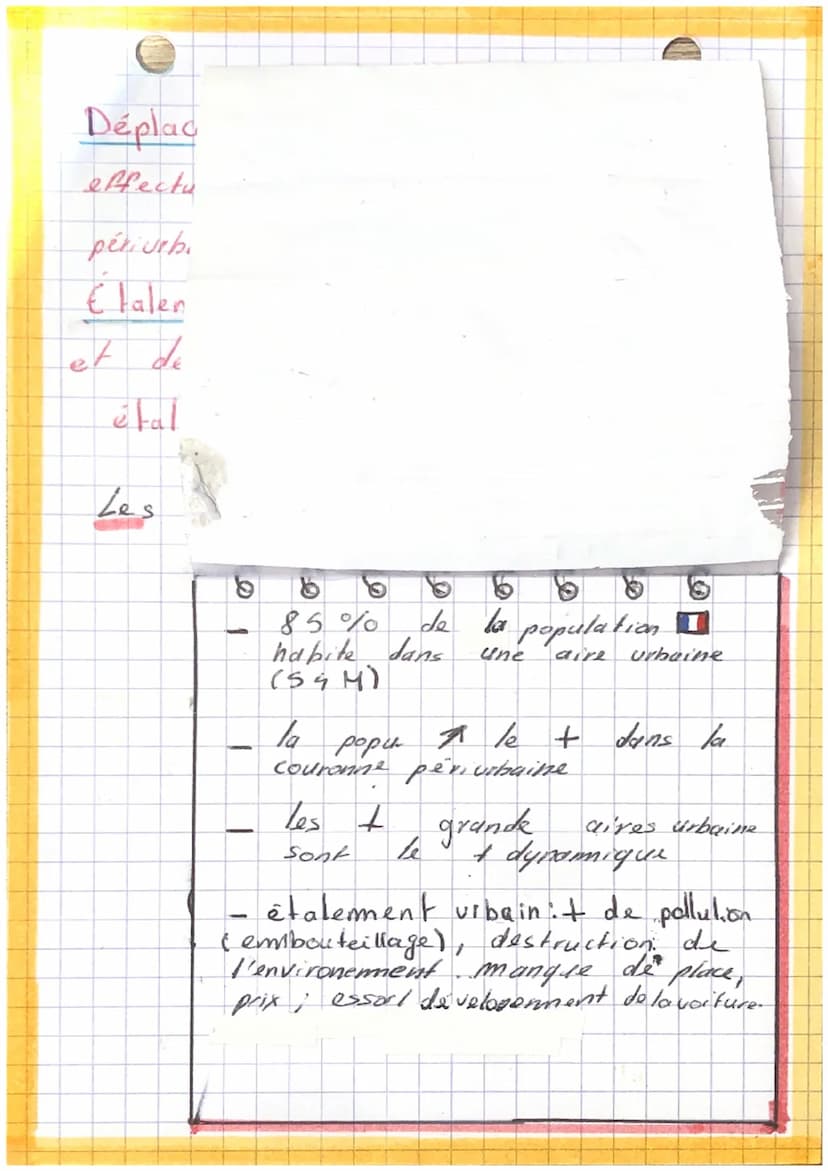 Déplac
effectu
périurb
Étalem
et de
étal
Les
- 85 % de la population 🇫🇷
habite dans une aire urbaine
(54 M)
- la popu ↗ le + dans la
couronne périurbaine
- les + grande aires urbaine
sont le + dynamique
- étalement urbain : + de pollution
(embouteillage), destruction de
l'environement. manque de place,
prix ; essort dévelopement de la voiture.